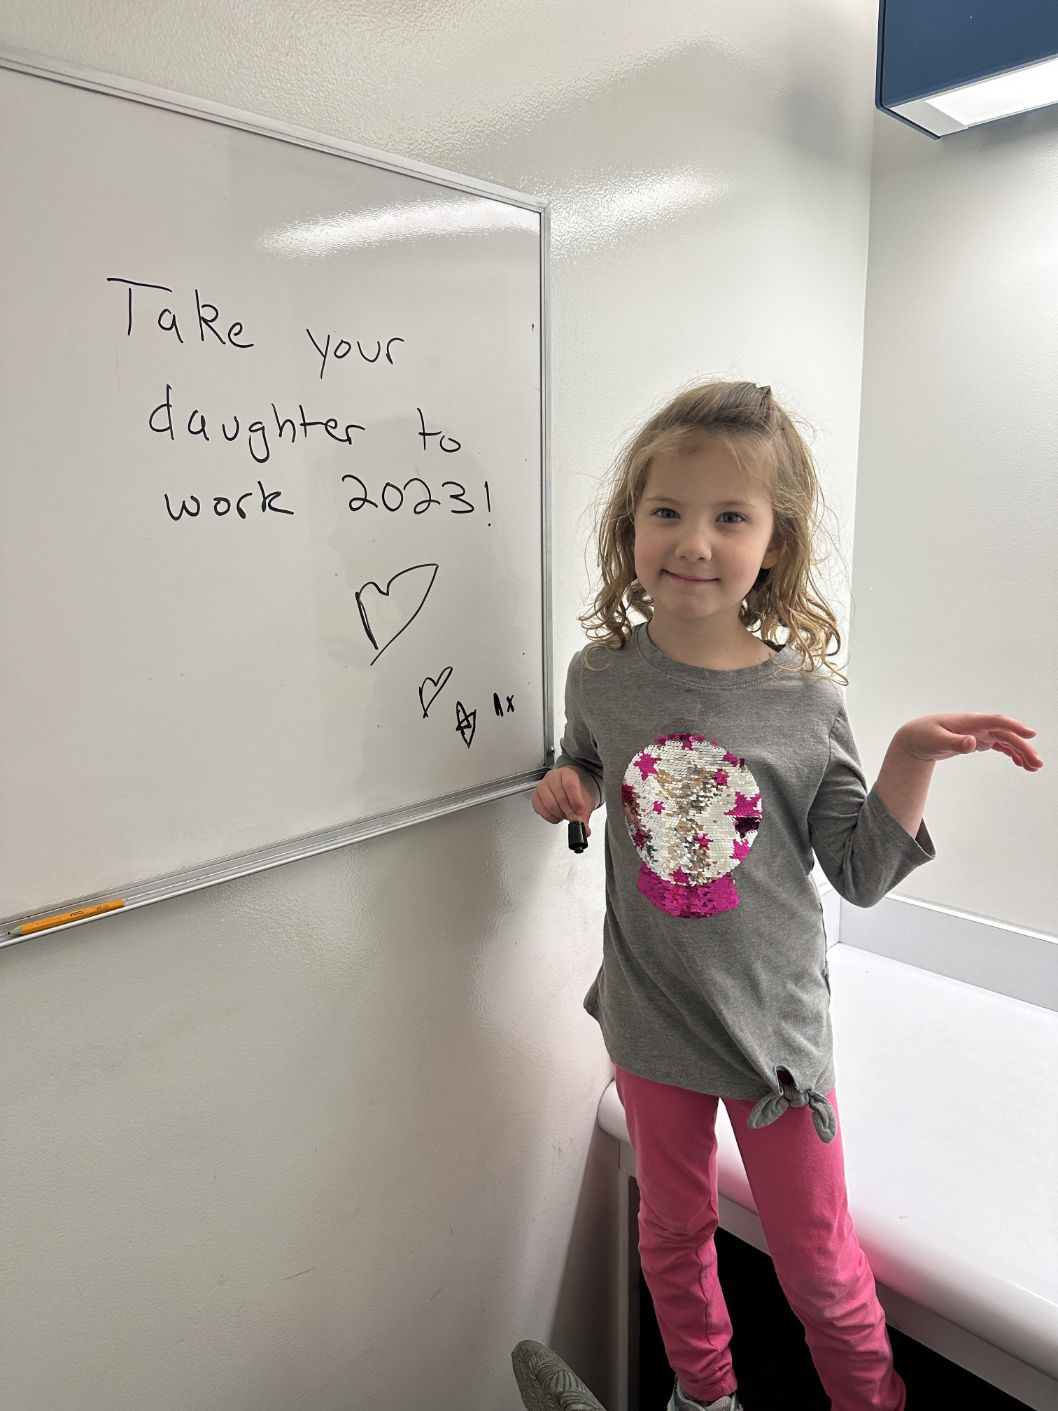 Take your
daughter to
work 2023!